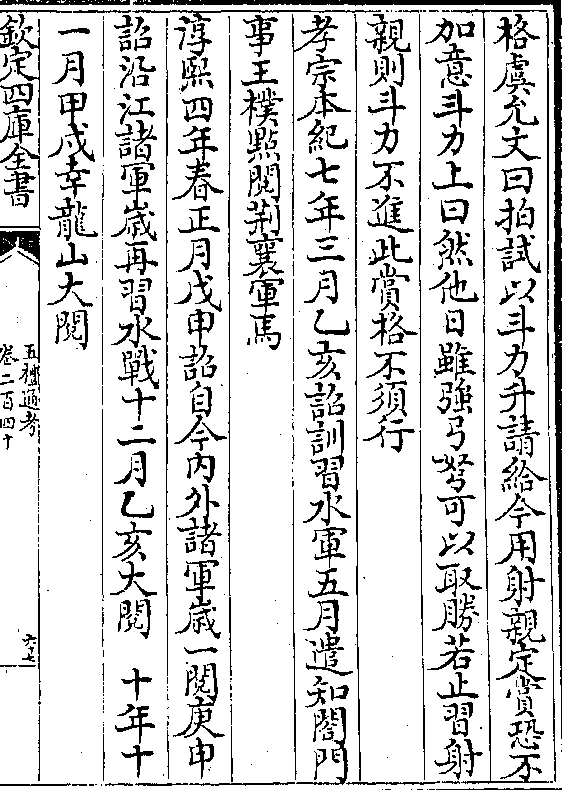 格虞允文曰拍試以斗力升請給今用射親定賞恐不
加意斗力上曰然他日雖強弓弩可以取勝若止習射
親則斗力不進此賞格不須行
孝宗本紀七年三月乙亥詔訓習水軍五月遣知閤門
事王樸㸃閱荆襄軍馬
淳熙四年春正月戊申詔自今内外諸軍歲一閱庚申
詔沿江諸軍歲再習水戰十二月乙亥大閱　十年十
一月甲戌幸龍山大閱
欽定四庫全書
五禮通考
卷二百四十
六七